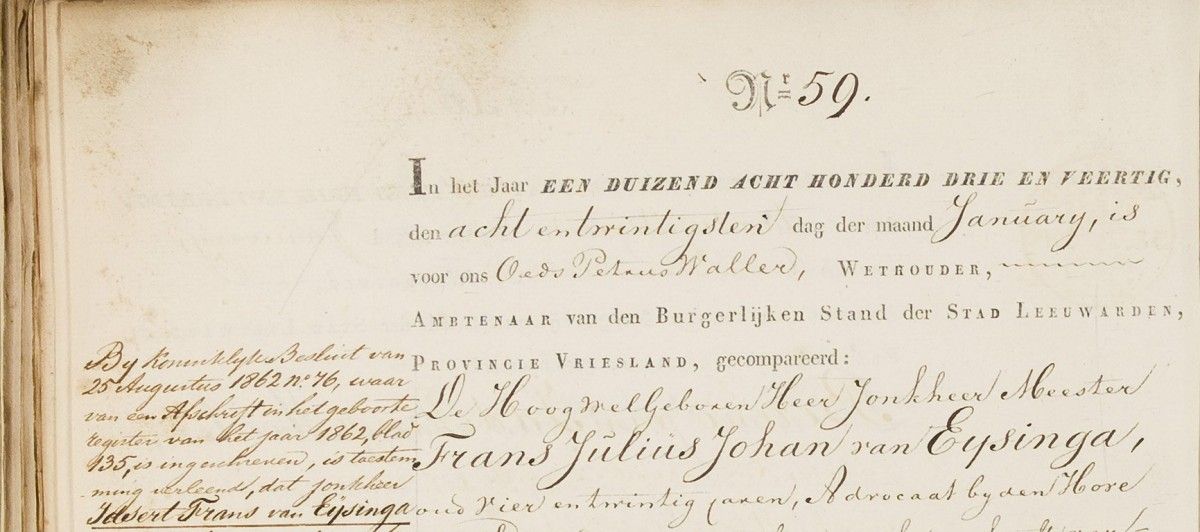 Nr 59.
In het Jaar EEN DUIZEND ACHT HONDERD DRIE EN VEERTIG,
den acht entwintigsten dag der maand January, is
voor ons Oeds Petrus Waller, WETHOUDER,
AMBTENAAR van den Burgerlijken Stand der STAD LEEUWARDEN,
PROVINCIE VRIESLAND, gecompareerd:
De HoogWelGeboren Heer Jonkheer Meester
Frans Julius Johan van Eysinga,
oud vier entwintig jaren, Advocaat by den Hove
By Koninklyk Besluit van
25 Augustus 1862 no 76, waar
van een Afschrift in het geboorte
register van het jaar 1862, blad
135, is ingeschreven, is toestem
ming verleend, dat jonkheer
Idsert Frans van Eysinga